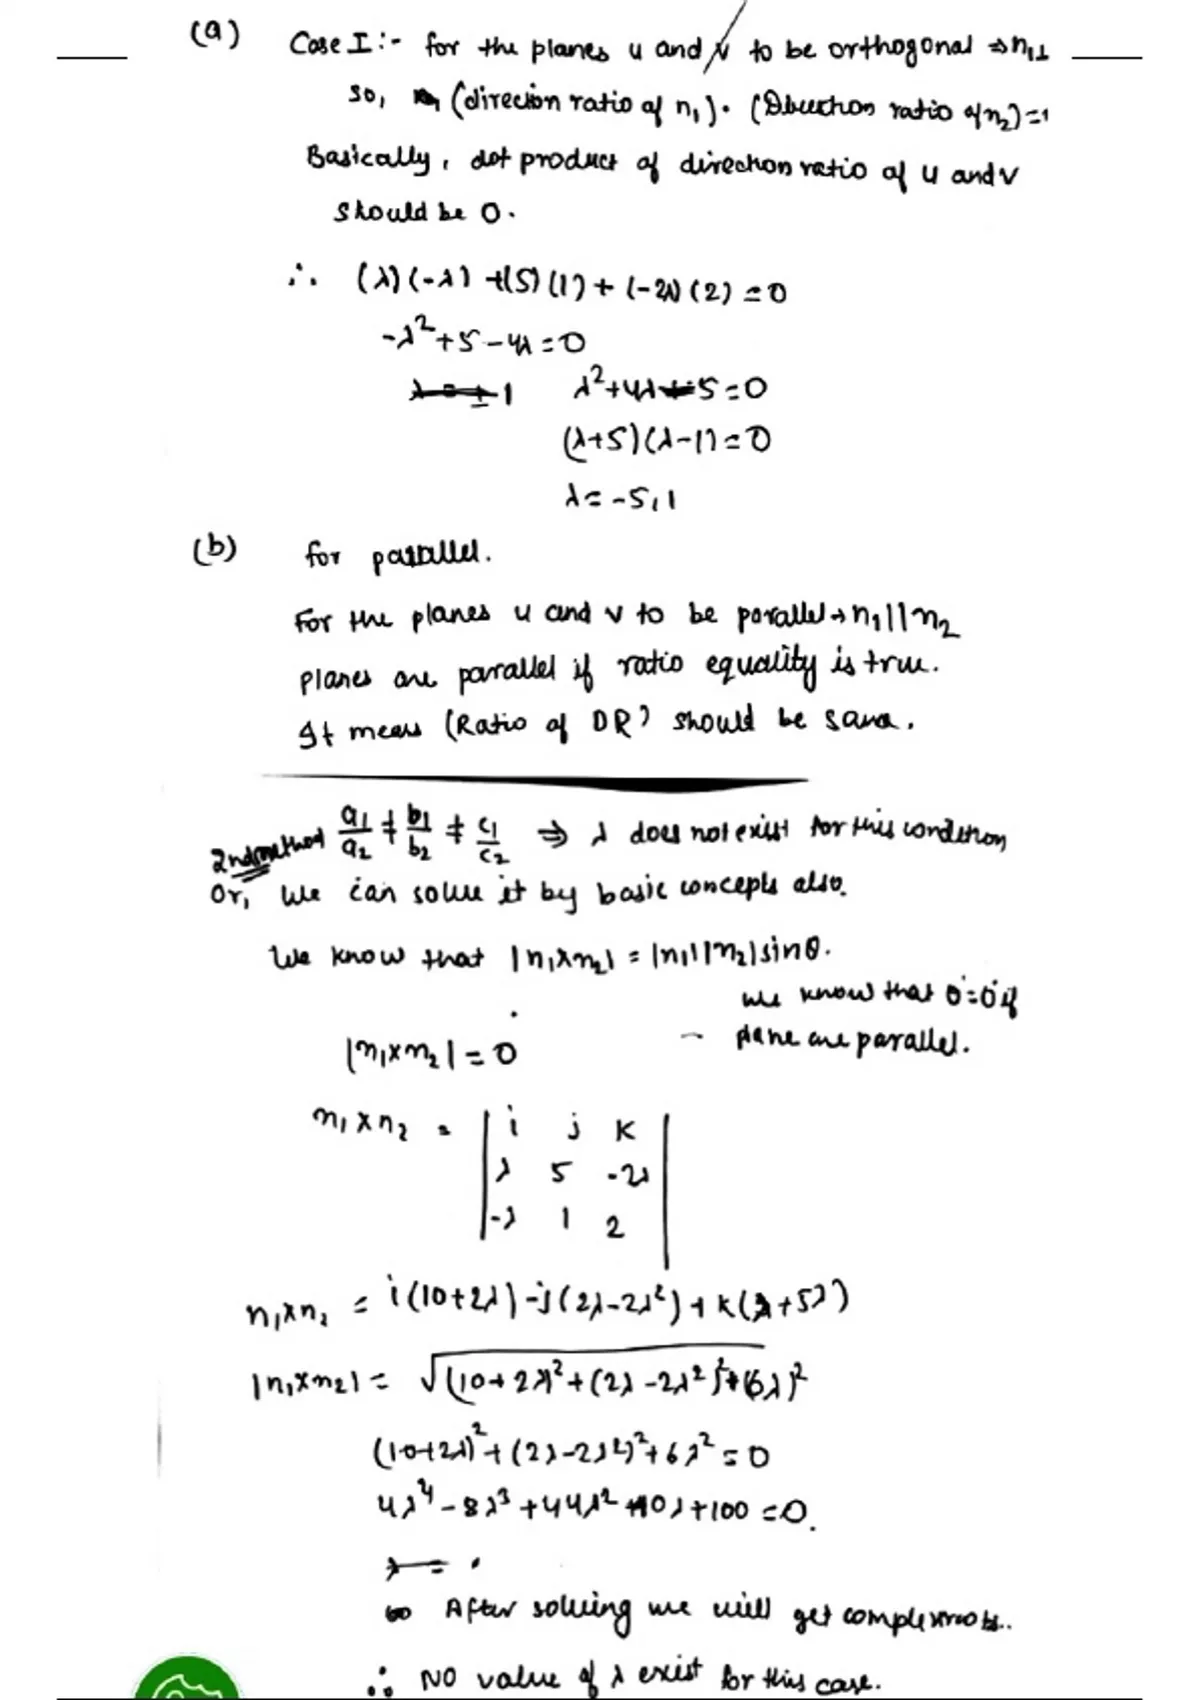 (a) Case I :- for the planes u and v to be orthogonal ⇒ n₁⊥
so, (direcion ratio of n₁). (Direction ratio of n₂) =
Basically, dot product of direction ratio of u and v
should be 0.
∴ (λ)(-λ) +(5)(1) + (-2λ)(2) = 0
-λ² + 5 - 4λ = 0
λ² + 4λ - 5 = 0
(λ+5)(λ-1) = 0
λ = -5, 1
(b) for parallel.
For the planes u and v to be parallel → n₁||n₂
planes are parallel if ratio equality is true.
It means (Ratio of DR) should be same.
2nd method a₁/a₂ ≠ b₁/b₂ ≠ c₁/c₂ ⇒ λ does not exist for this condition
Or, We can solve it by basic concepts also.
We know that |n₁×n₂| = |n₁||n₂|sinθ.
we know that θ=0 if
plane are parallel.
|n₁×n₂| = 0
n₁×n₂ = | i j k
λ 5 -2λ
-λ 1 2 |
n₁×n₂ = i(10+2λ) - j(2λ-2λ²) + k(λ+5λ)
|n₁×n₂| = √(10+2λ)² + (2λ-2λ²)² + (6λ)²
(10+2λ)² + (2λ-2λ²)² + 6λ² = 0
4λ⁴ - 8λ³ + 44λ² +40λ + 100 = 0.
λ =
After solving we will get complex roots..
∴ NO value of λ exist for this case.